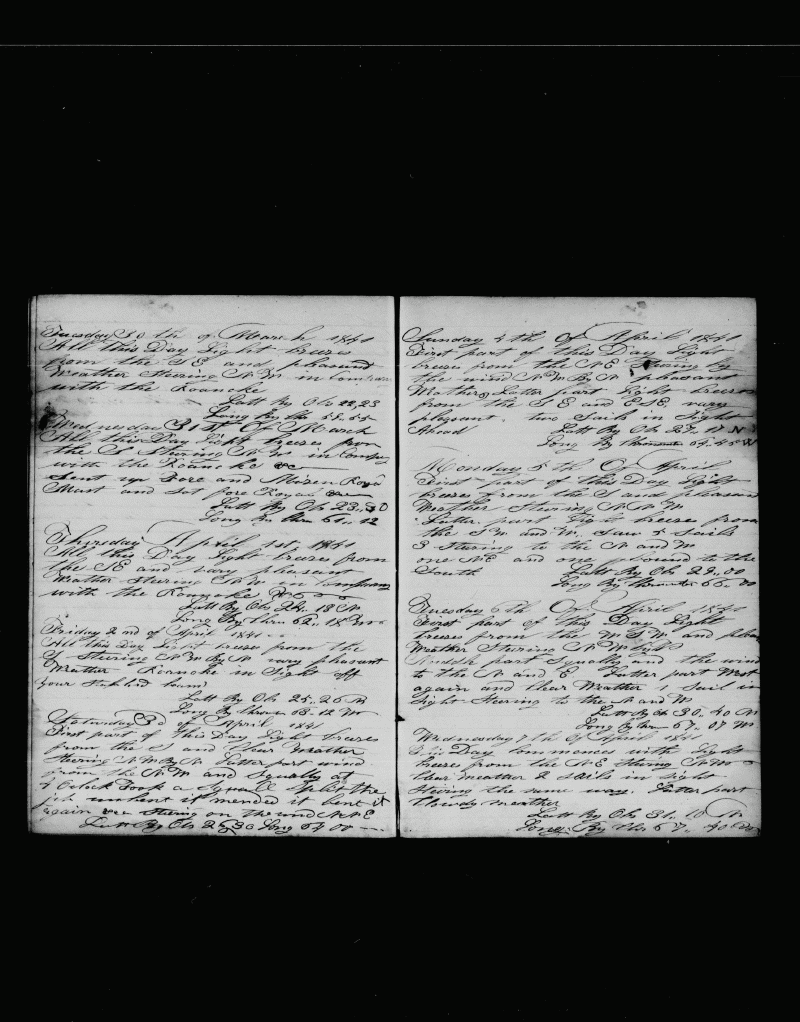 Tuesday 30 th of March 1841
All this Day Light breeses
from the S E and pleasant
Weather Stering N W in Company
with the Roanoke
Latt By Obs 22,23
Long By
Wednesday 31 st Of March
All this Day Light breeses from
the S Stering N W in Company
with the Roanoke &c
Sent up Fore and Mizen Royal
Mast and Set fore Royal &c
Latt By Obs 23,,30
Long By Chro 61,, 12
Thursday April 1st 1841
All this Day Light breeses from
the S E and vary pleasant
Weather Stering N W in Company
with the Roanoke &c
Latt By Obs 24,, 18 N
Long By Chro 62,, 15 W
Friday 2 nd of April 1841
All this Day Light breses from the
S Stering N W By N vary pleasant
Weather Roanoke in Sight off
your Starbord beam
Latt By Obs 25,, 26 N
Long By Chro 63,, 12 W
Saturday 3 d of April 1841
First part of this Day Light breeses
from the S and Clear Weather
Stering N W By N Latter part wind
from the N W and Squally at
4 Oclock Took a Squall Split the
jib unbent it mended it bent it
again &c Stering on the wind N N E
Latt By Obs 26,,30 Long 64 00
Sunday 4 th Of April 1841
First part of this Day Light
breses from the N E Stering by
the wind N W By N pleasant
Weather Latter part Light breeses
from the S E and E S E vary
pleasant two Sails in Sight
Ahead Latt By Obs 27,, 17 N
Long By Chronometer 64,,45 W
Monday 5 th Of April
First part of this Day Light
breeses from the S and pleasant
Weather Stering N N W
Latter part Light breeses from
the S W and W Saw 5 Sails
3 Stering to the N and W
one N E and one bound to the
South Latt By Obs 29,,00
Long By Chronometer 66,,00
Tuesday 6 th Of April 1841
First part of this Day Light
breeses from the W S W and pleasant
Weather Stering N W
Middle part Squally and the wind
to the N and E Latter part West
again and Clear Weather 1 Sail in
Sight Stering to the N and W
Latt By Obs 30,, 40 N
Long By Chro 67,, 07 W
Wednesday 7 th Of April 1841
This Day Commences with Light
breses from the N E Stering N W
Clear Weather 2 Sails in Sight
Stering the same way Latter part
Cloudy weather
Latt By Obs 31,, 10 N
Long By Chro 67,, 40 W